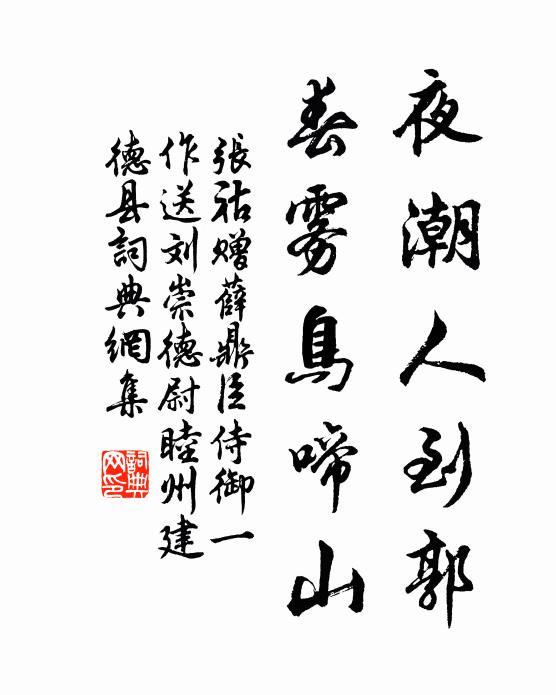 夜潮人到郭
春雾鳥啼山
張祜赠薛鼎臣侍御一
作送刘崇德尉睦州建
德县詞典網集
詞典
网印